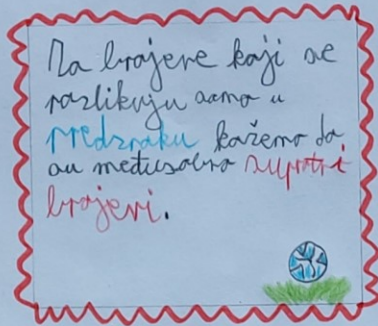 Za brojeve koji se
razlikuju samo u
predznaku kažemo da
su međusobno suprotni
brojevi.